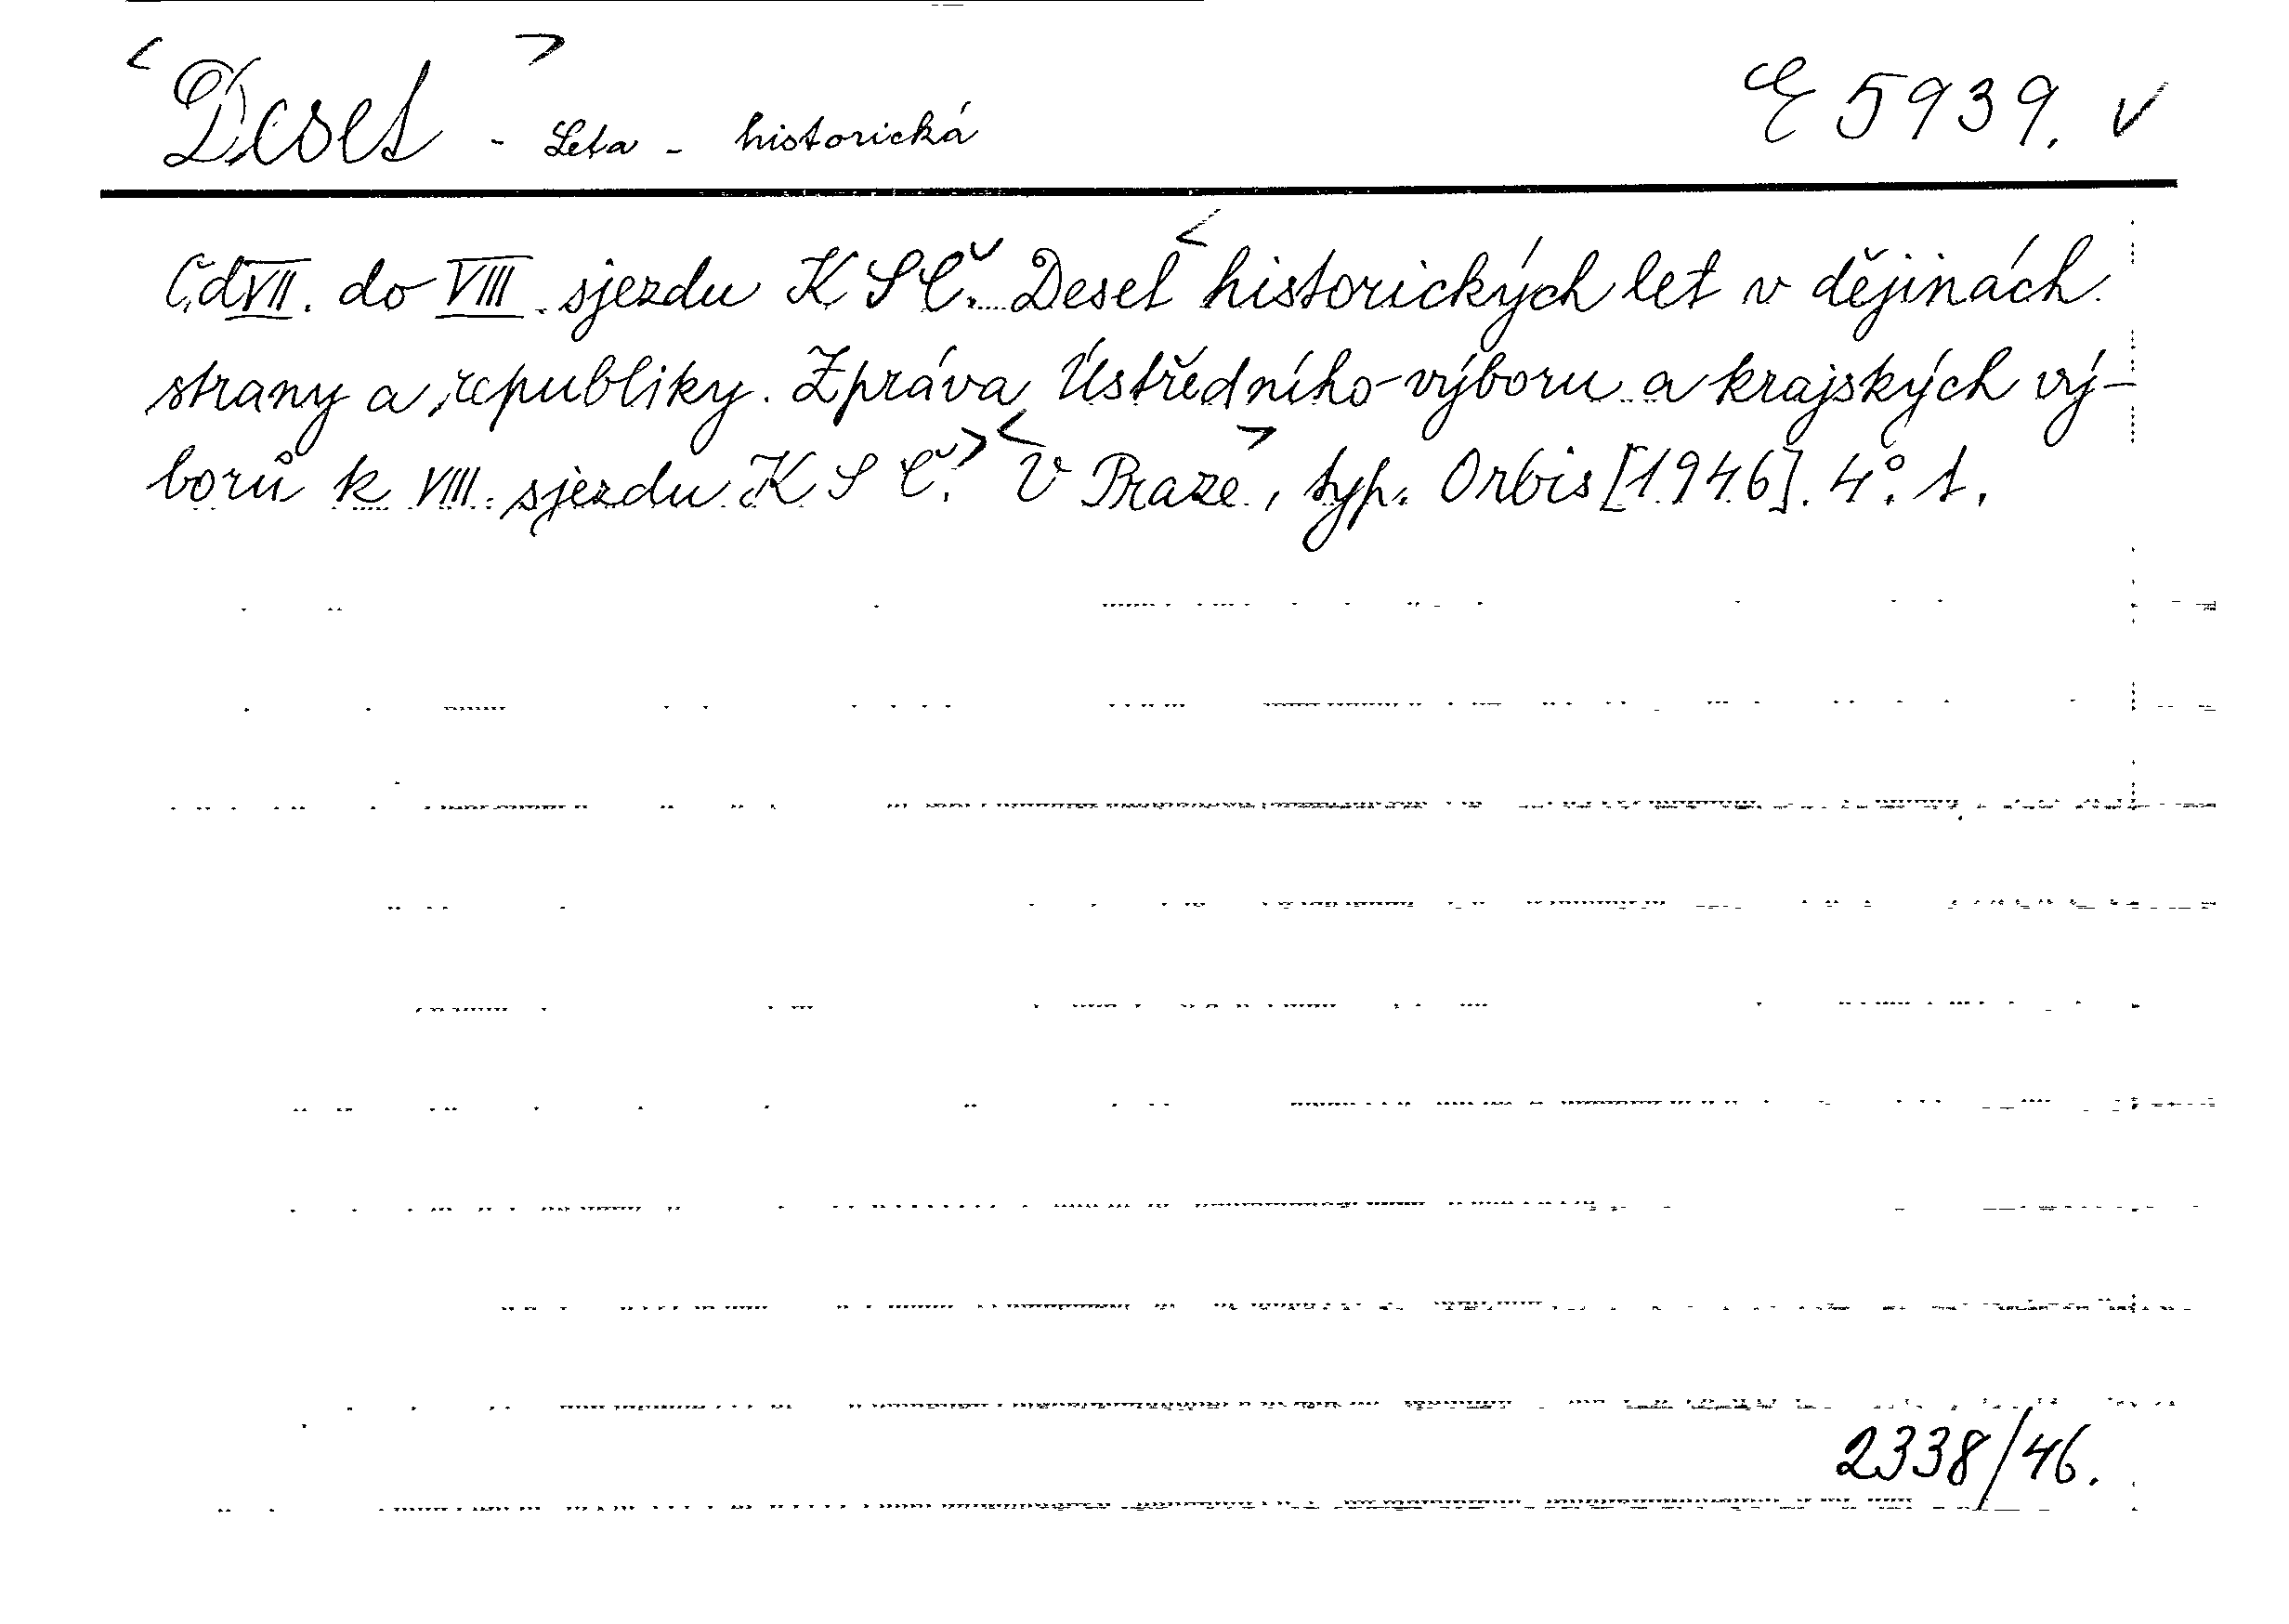 <Deset> - Leta - historická E 5939. v
Od VII. do VIII. sjezdu KSČ. Deset <historických let v dějinách
strany a republiky. Zpráva Ústředního výboru a krajských vý-
borů k VIII. sjezdu KSČ.> <V Praze>, typ. Orbis [1946]. 4°. 1.
2338/46.